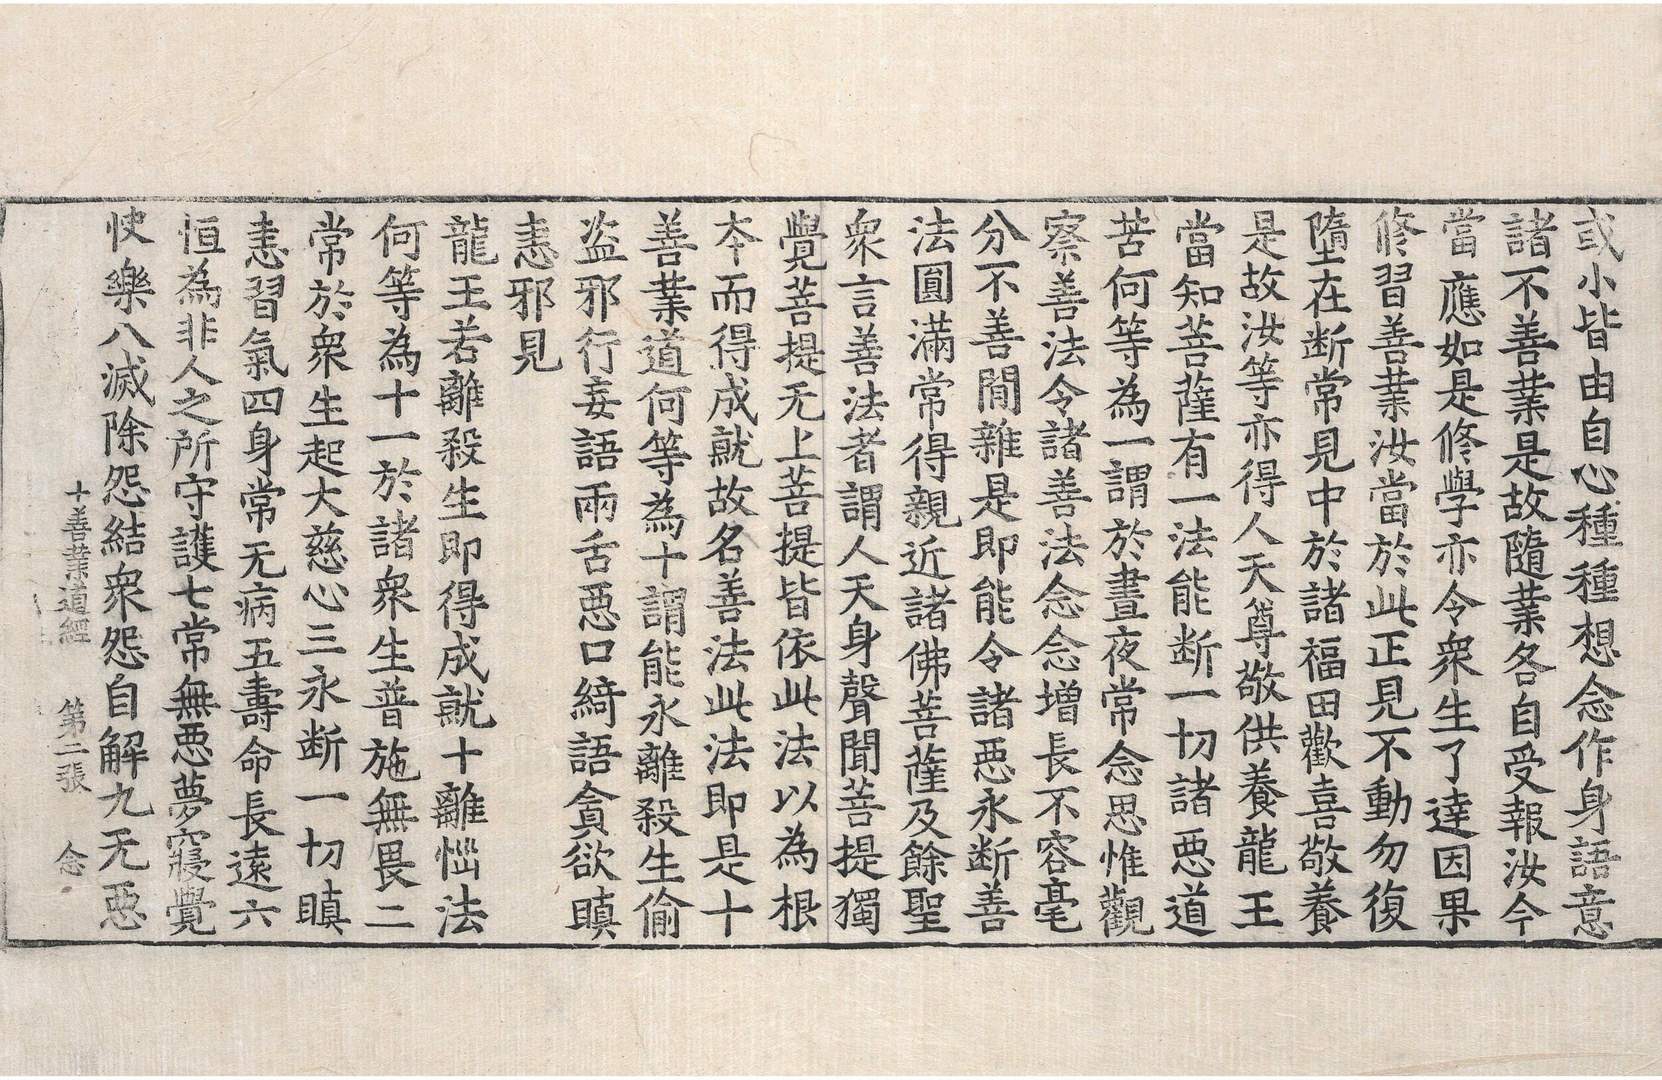 或小皆由自心種種想念作身語意
諸不善業是故隨業各自受報汝今
當應如是修學亦令衆生了達因果
修習善業汝當於此正見不動勿復
墮在断常見中於諸福田歡喜敬養
是故汝等亦得人天尊敬供養龍王
當知菩薩有一法能断一切諸惡道
苦何等為一謂於晝夜常念思惟觀
察善法令諸善法念念增長不容毫
分不善間雜是即能令諸惡永断善
法圓滿常得親近諸佛菩薩及餘聖
衆言善法者謂人天身聲聞菩提獨
覺菩提无上菩提皆依此法以為根
本而得成就故名善法此法即是十
善業道何等為十謂能永離殺生偷
盗邪行妄語兩舌惡口綺語貪欲瞋
恚邪見
龍王若離殺生即得成就十離惱法
何等為十一於諸衆生普施無畏二
常於衆生起大慈心三永断一切瞋
恚習氣四身常无病五壽命長遠六
恒為非人之所守護七常無惡夢寢覺
快樂八滅除怨結衆怨自解九无惡
十善業道經 第二張 念